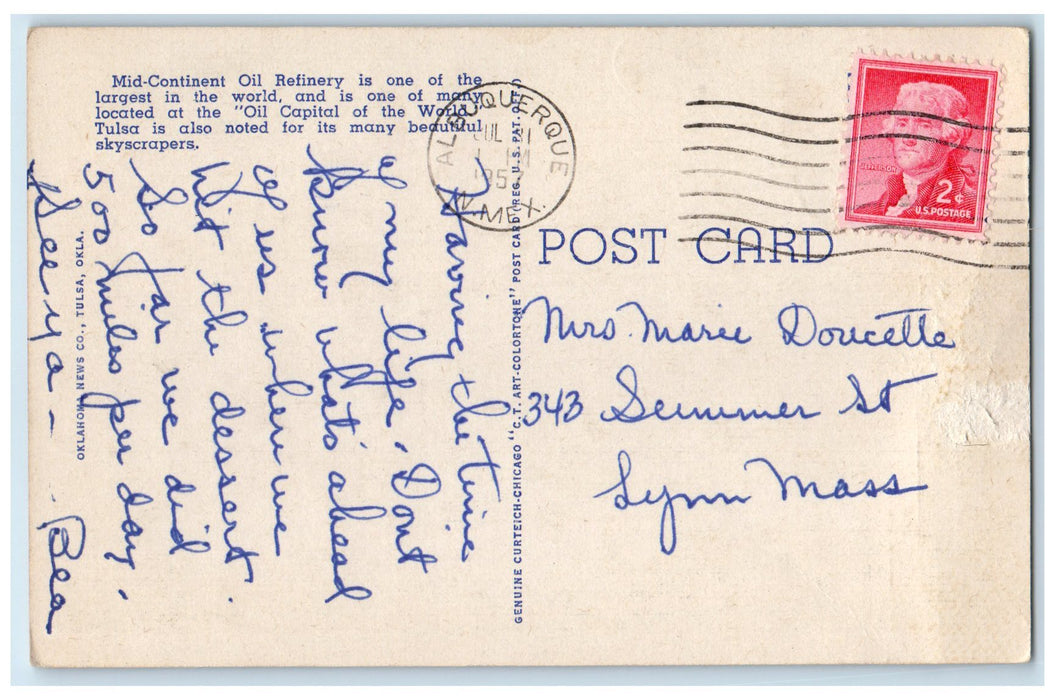 Mid-Continent Oil Refinery is one of the
largest in the world, and is one of many
located at the "Oil Capital of the World."
Tulsa is also noted for its many beautiful
skyscrapers.
Having the time
of my life. Dont
know whats ahead
of us where we
hit the dessert.
So far we did
500 miles per day.
See ya — . Bea
OKLAHOMA NEWS CO., TULSA, OKLA.
GENUINE CURTEICH-CHICAGO "C.T. ART-COLORTONE" POST CARD (REG. U.S. PAT. OFF.)
ALBUQUERQUE
JUL
1957
N. MEX.
JEFFERSON
2¢
U.S. POSTAGE
POST CARD
Mrs. Marie Doucette
343 Summer St
Lynn Mass